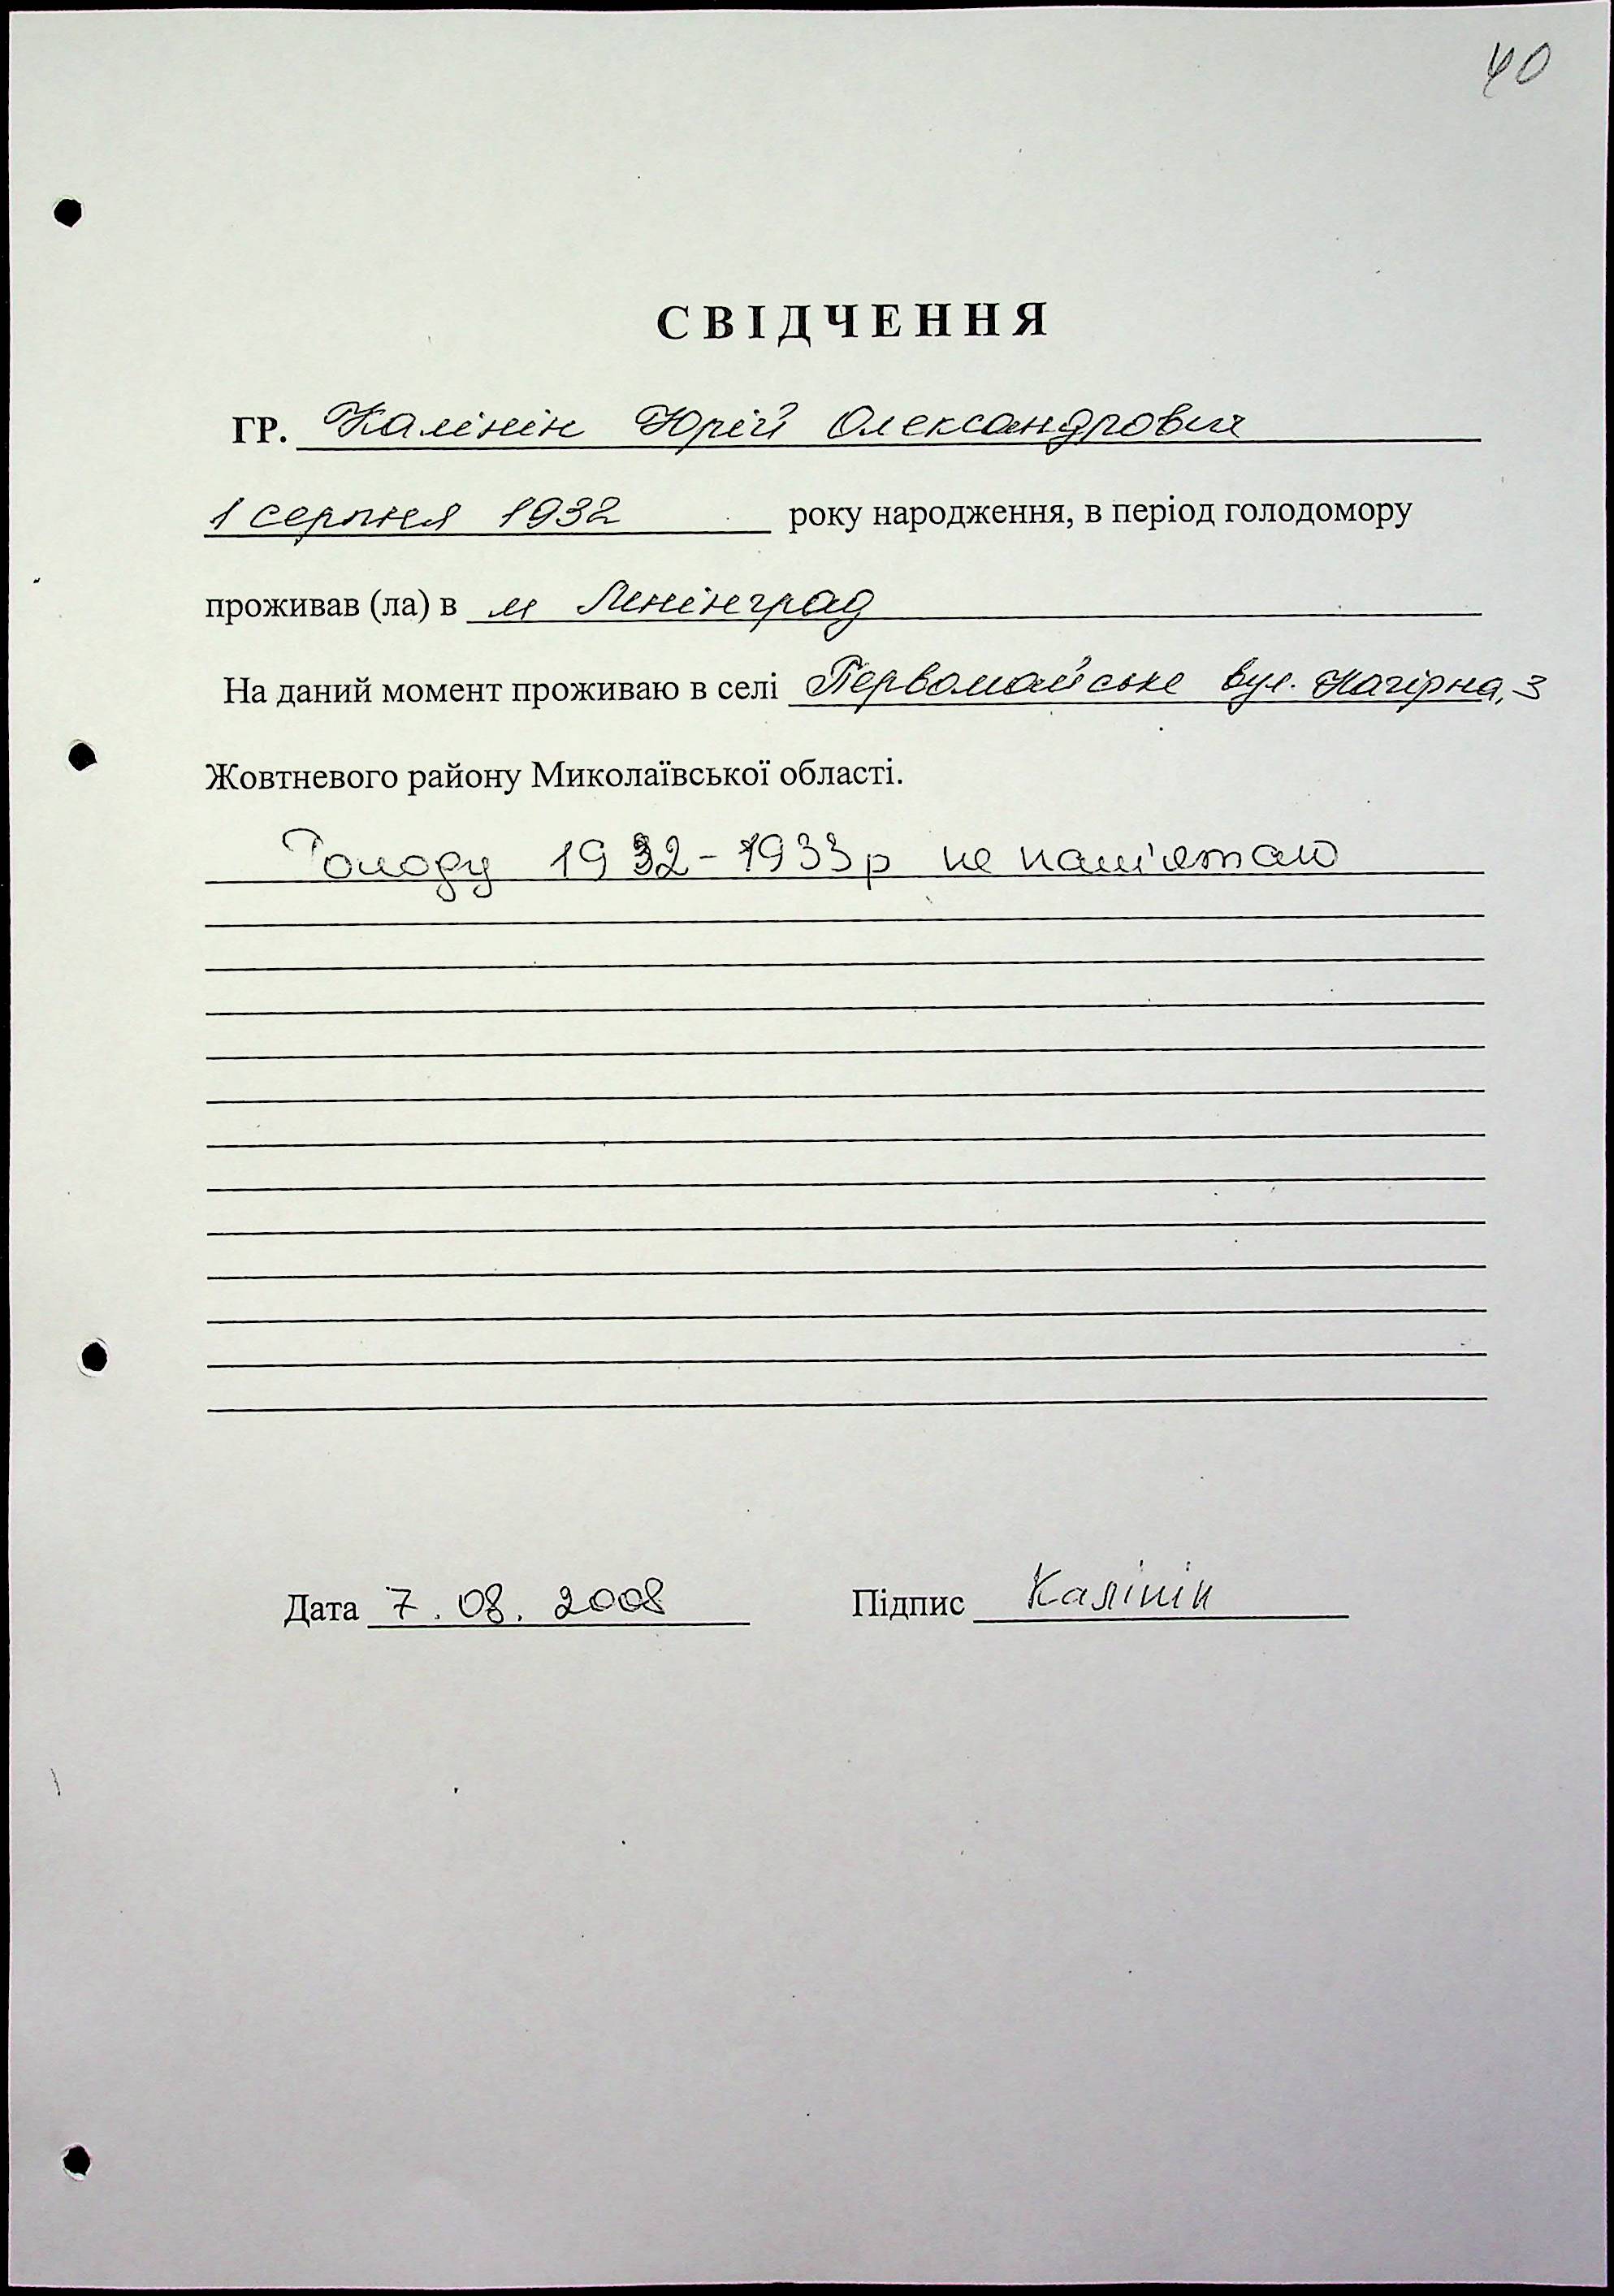 40
СВІДЧЕННЯ
ГР. Калінін Юрій Олександрович
1 серпня 1932 року народження, в період голодомору
проживав (ла) в м Ленінград
На даний момент проживаю в селі Первомайське вул. Нагірна, 3
Жовтневого району Миколаївської області.
Голоду 1932-1933р не пам'ятаю
Дата 7.08.2008 Підпис Калінін